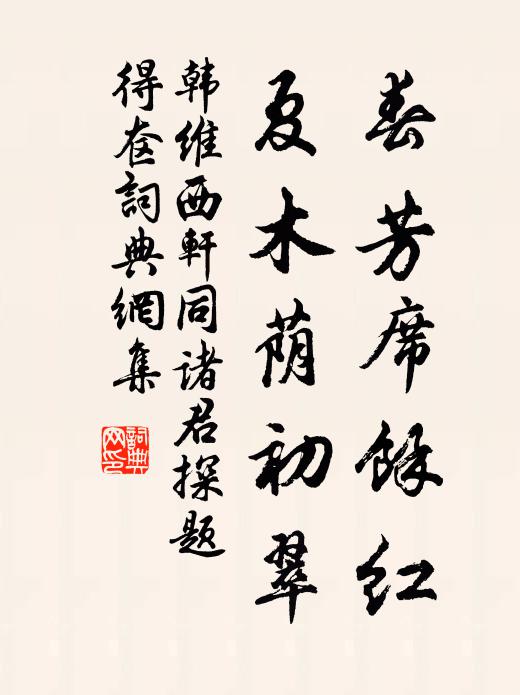 春芳席餘红
夏木荫初翠
韩维西軒同诸君探题
得奁詞典網集
詞典網印